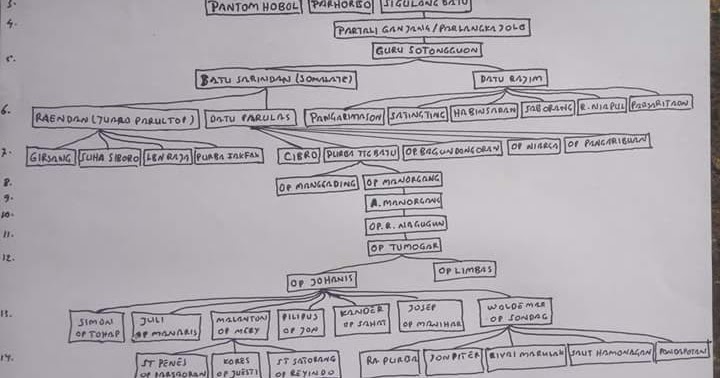 3. PANTOM HOBOL PARHORBO SIGULANG BATU
4. PARTALI GANJANG/PARLANGKA JOLO
GURU SOTONGGUON
5.
BATU SARINDAN (SOMALATE) DATU RAJIM
6. RAENDAN (JUARO PARULTOP) DATU PARULAS PANGARIMASON SATINGTING HABINSARAN SABORANG R.NIAPUL PARARITAON
7. GIRSANG SUHA SIBORO LBN RAJA PURBA JAKFAK CIBRO PURBA TIGBATU OP BAGUNDONGORAN OP NIARGA OP PANGARIBUAN
8. OP MANGGADING OP MANORGANG
9. A. MANORGANG
10. OP.R. NAGUGUN
11. OP TUMOGAR
12. OP JOHANIS OP LIMBAS
13. SIMON OP TOHAP JULI OP MANARIS MALANTON OP MERY PILIPUS OP JON KANDER OP SAHAT JOSEP OP MANIHAR WOLDEMAR OP SONDAG
14. ST PENES OP PARSAORAN KORES OP JUESTI ST SATORANG OP REYINDO RA PURBA JON PITER RIVAI MARULAK SAUT HAMONAGAN PANDAPOTAN